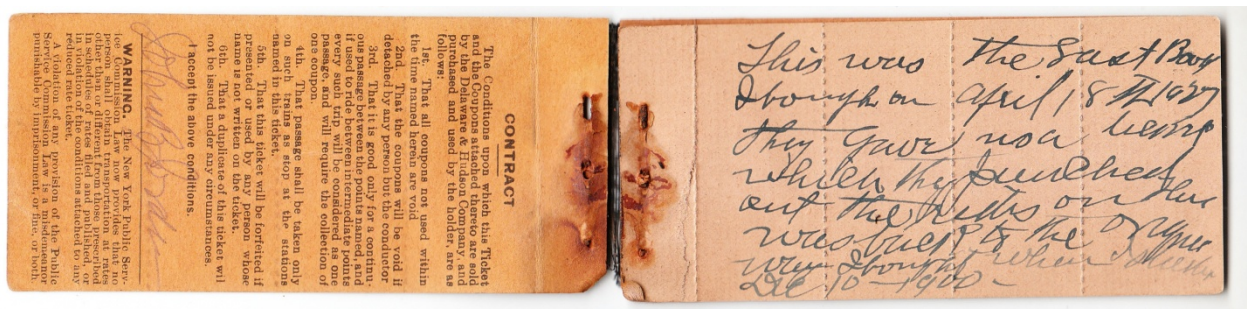 CONTRACT
The Conditions upon which this Ticket
and the Coupons attached thereto are sold
by the Delaware & Hudson Company, and
purchased and used by the holder, are as
follows:
1st. That all coupons not used within
the time named herein are void.
2nd. That the coupons will be void if
detached by any person but the conductor
3rd. That it is good only for a continu-
ous passage between the points named, and
if used to ride between intermediate points
every such trip will be considered as one
passage, and will require the collection of
one coupon.
4th. That passage shall be taken only
on such trains as stop at the stations
named in this ticket.
5th. That this ticket will be forfeited if
presented or used by any person whose
name is not written on the ticket.
6th. That a duplicate of this ticket will
not be issued under any circumstances.
I accept the above conditions.
WARNING. The New York Public Serv-
ice Commission Law now provides that no
person shall obtain transportation at rates
other than or different from those prescribed
in schedules of rates filed and published, or
in violation of the conditions attached to any
reduced rate ticket.
A violation of any provision of the Public
Service Commission Law is a misdemeanor
punishable by imprisonment or fine, or both.
This was the Last Book
I bought on April 18 th 1927
they gave
which they punched
out the on
was back to the
way I bought when I
Dec 10 - 1900 -